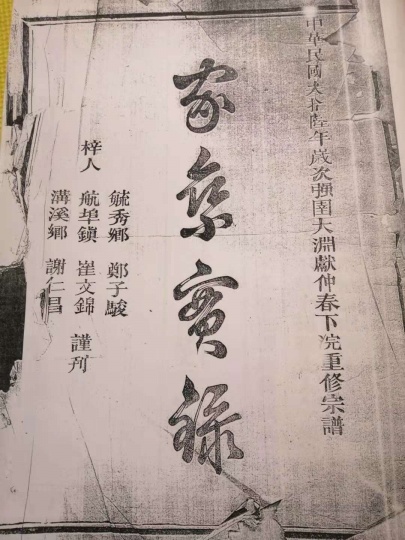 中華民國拾陸年歲次強圉大淵獻仲春下浣重修宗譜
家乘實錄
毓秀鄉 鄭子駿
梓人 航埠鎮 崔文錦 謹刊
溝溪鄉 謝仁昌